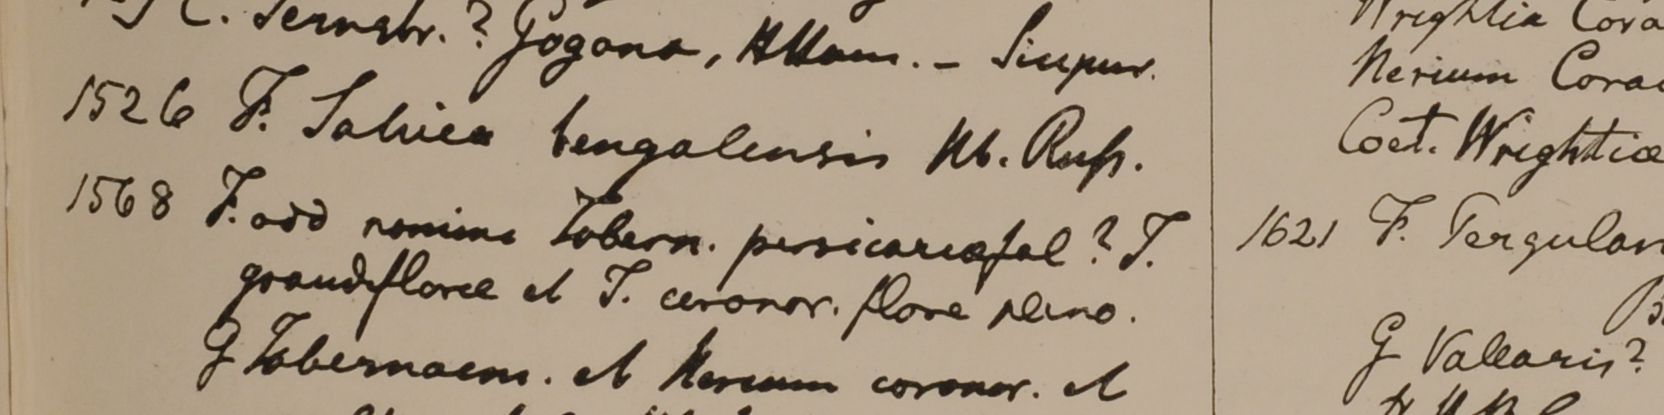 C. Ternstr.? Gogona, Ham. - Sicpur.
1526 F. Salvia bengalensis Hb. Russ.
1568 F. add nomine Tabern. persicariæfol? T.
grandiflorae et T. coronar. flore pleno.
G Tabernaem. et Nerium coronar. et
Wrightia Cora
Nerium Corae
Coet. Wrightiæ
1621 F. Pergular
B
G Vallaris?